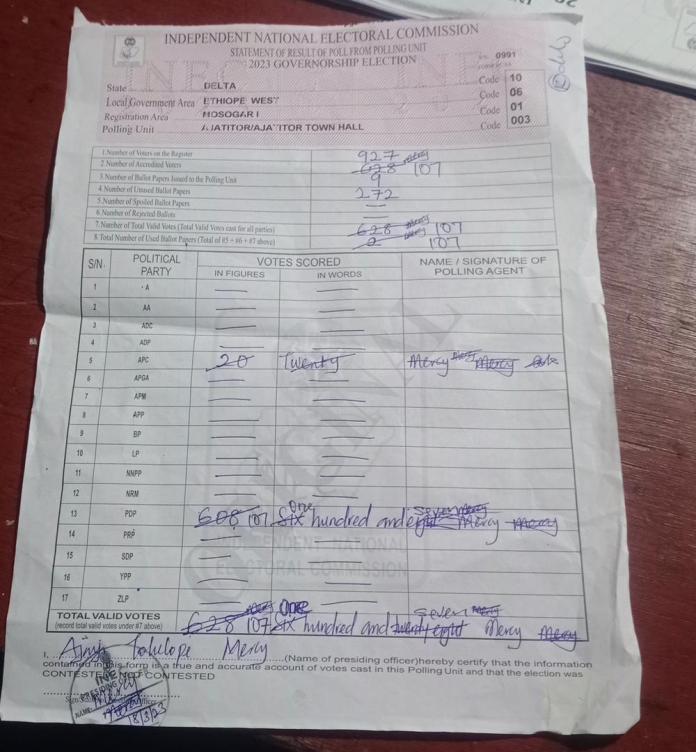 INDEPENDENT NATIONAL ELECTORAL COMMISSION
STATEMENT OF RESULT OF POLL FROM POLLING UNIT
2023 GOVERNORSHIP ELECTION
0991
State DELTA Code 10
Local Government Area ETHIOPE WEST Code 06
Registration Area MOSOGAR I Code 01
Polling Unit AJATITOR/AJATITOR TOWN HALL Code 003
1.Number of Voters on the Register 927
2.Number of Accredited Voters 628 107
3.Number of Ballot Papers Issued to the Polling Unit 9
4.Number of Unused Ballot Papers 272
5.Number of Spoiled Ballot Papers —
6.Number of Rejected Ballots —
7.Number of Total Valid Votes (Total Valid Votes cast for all parties) 628 107
8.Total Number of Used Ballot Papers (Total of #5 + #6 + #7 above) 107
S/N. POLITICAL PARTY VOTES SCORED IN FIGURES IN WORDS NAME / SIGNATURE OF POLLING AGENT
1 A — —
2 AA — —
3 ADC — —
4 ADP — —
5 APC 20 Twenty Mercy Mercy
6 APGA — —
7 APM — —
8 APP — —
9 BP — —
10 LP — —
11 NNPP — —
12 NRM — —
13 PDP 608 107 Six One hundred and eight seven Mercy Mercy
14 PRP — —
15 SDP — —
16 YPP — —
17 ZLP — —
TOTAL VALID VOTES 628 107 Six One hundred and twenty eight seven Mercy Mercy
(record total valid votes under #7 above)
I, Mercy (Name of presiding officer)hereby certify that the information
contained in this form is a true and accurate account of votes cast in this Polling Unit and that the election was
CONTESTED/NOT CONTESTED
18/3/23